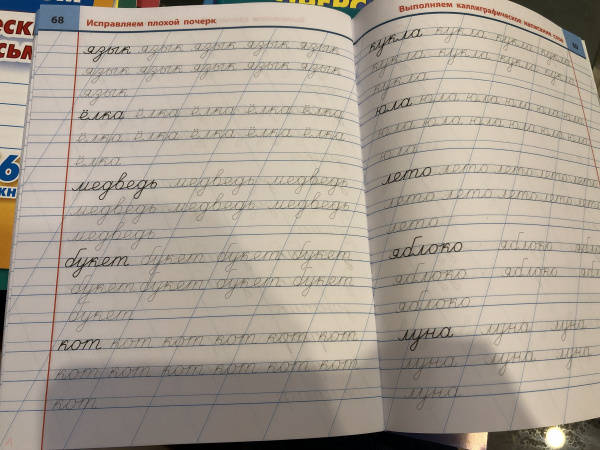 68 Исправляем плохой почерк
язык язык язык язык язык
язык язык язык язык язык
язык
ёлка ёлка ёлка ёлка ёлка
ёлка ёлка ёлка ёлка ёлка
ёлка
медведь медведь медведь
медведь медведь медведь
медведь
букет букет букет букет
букет букет букет букет
букет
кот кот кот кот кот кот
кот кот кот кот кот кот
кот
Выполняем каллиграфическое написание слов
кукла кукла кукла кукла
кукла кукла кукла кукла
кукла
юла юла юла юла юла юла
юла юла юла юла юла юла
юла
лето лето лето лето лето
лето лето лето лето лето
лето
яблоко яблоко
яблоко яблоко
яблоко
луна луна луна
луна луна луна
луна